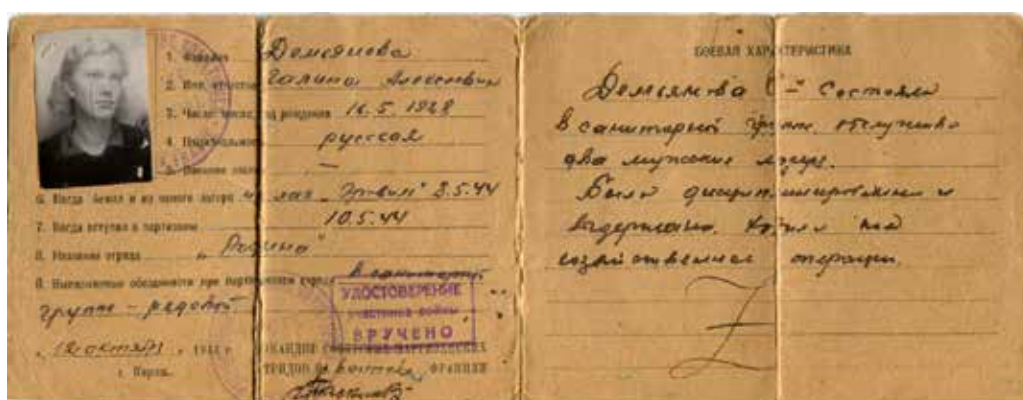 1. Фамилия Демьянова
2. Имя, отчество Галина Алексеевна
3. Число, месяц, год рождения 16.5.1928
4. Национальность русская
5. Воинское звание —
6. Когда бежал и из какого лагеря из лаг. "Эрвил" 8.5.44
7. Когда вступил в партизаны 10.5.44
8. Название отряда "Родина"
9. Выполняемые обязанности при партизанском отряде В санитарной
группе - рядовой
УДОСТОВЕРЕНИЕ
участника войны
ВРУЧЕНО
"12 октября" 1944 г.
КОМАНДИР СОВЕТСКИХ ПАРТИЗАНСКИХ
г. Париж.
ФРАНЦИИ
БОЕВАЯ ХАРАКТЕРИСТИКА
Демьянова Состояла
в санитарной групп. обслуживо
два мужские лагеря.
Была дисциплинирована и
выдержана. Ходила на
хозяйственные операции.